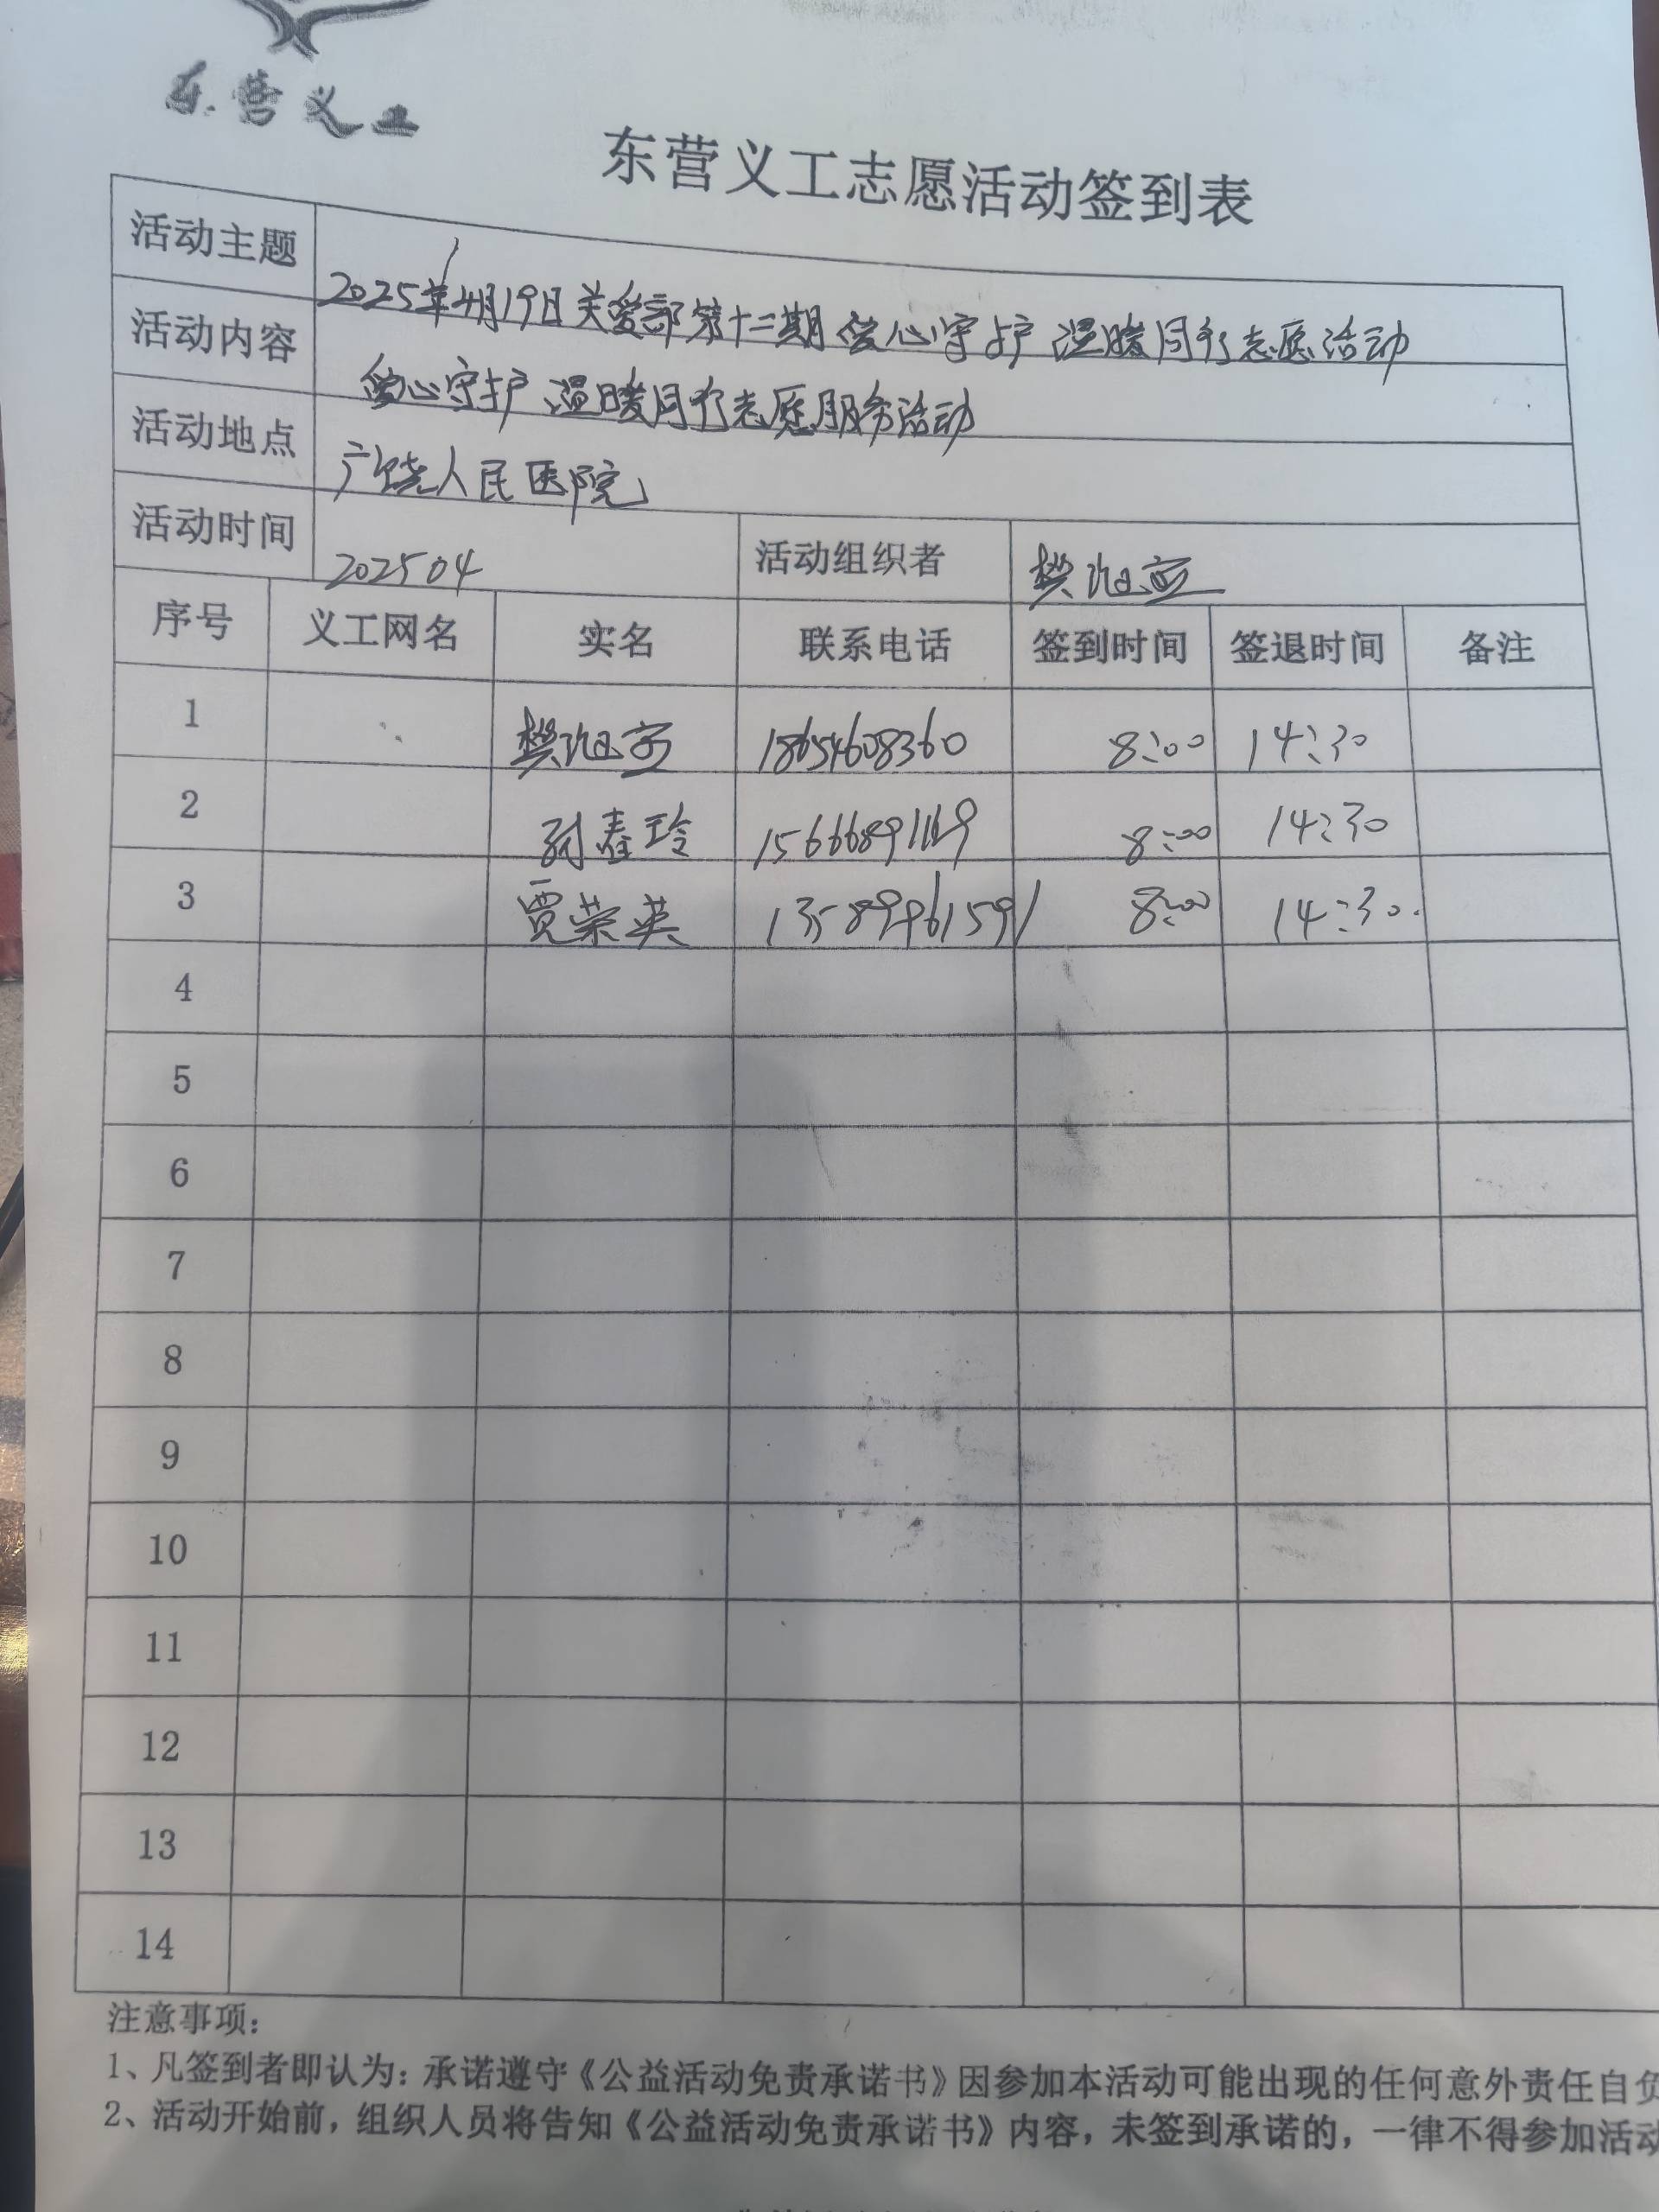 东营义工
东营义工志愿活动签到表
活动主题 2025年4月19日关爱部第十二期爱心守护 温暖同行志愿活动
活动内容 爱心守护 温暖同行志愿服务活动
活动地点 广饶人民医院
活动时间 202504 活动组织者 樊
序号 义工网名 实名 联系电话 签到时间 签退时间 备注
1 樊 18654608360 8:00 14:30
2 孙春玲 15666891169 8:00 14:30
3 贾荣英 13589961591 8:00 14:30
4
5
6
7
8
9
10
11
12
13
14
注意事项：
1、凡签到者即认为：承诺遵守《公益活动免责承诺书》因参加本活动可能出现的任何意外责任自负
2、活动开始前，组织人员将告知《公益活动免责承诺书》内容，未签到承诺的，一律不得参加活动